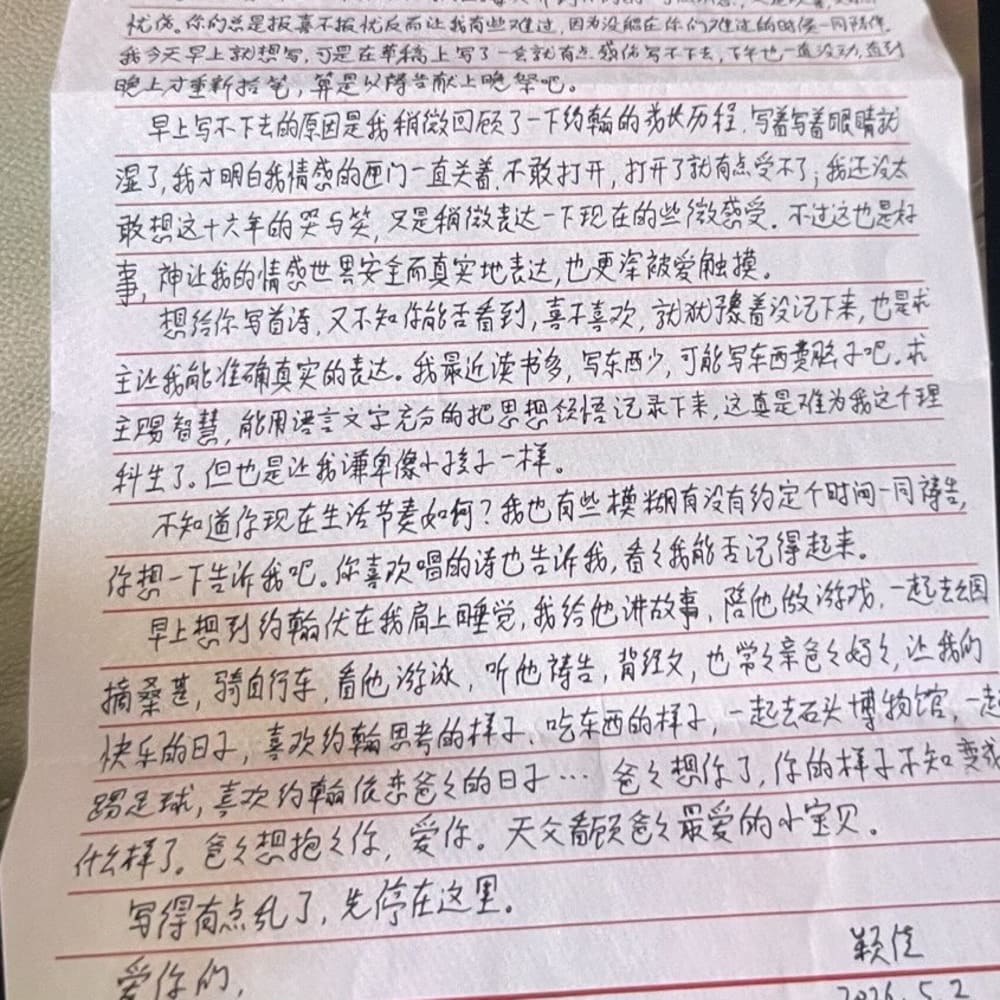 忧伤。你们总是报喜不报忧反而让我有些难过,因为没能在你们难过的时候一同陪伴。
我今天早上就想写,可是在草稿上写了一会就有点 写不下去,下午也一直没动,直到
晚上才重新拾笔,算是以祷告献上晚祭吧。
早上写不下去的原因是我稍微回顾了一下约翰的成长历程,写着写着眼睛就
湿了,我才明白我情感的匣门一直关着,不敢打开,打开了就有点受不了;我还没太
敢想这十六年的哭与笑,又是稍微表达一下现在的些微感受。不过这也是好
事,神让我的情感世界安全而真实地表达,也更深被爱触摸。
想给你写首诗,又不知你能否看到,喜不喜欢,就犹豫着没记下来,也是求
主让我能准确真实的表达。我最近读书多,写东西少,可能写东西费脑子吧。求
主赐智慧,能用语言文字充分的把思想领悟记录下来,这真是难为我这个理
科生了。但也是让我谦卑像小孩子一样。
不知道你现在生活节奏如何?我也有些模糊有没有约定个时间一同祷告,
你想一下告诉我吧。你喜欢唱的诗也告诉我,看々我能否记得起来。
早上想到约翰伏在我肩上睡觉,我给他讲故事,陪他做游戏,一起去公园
摘桑葚,骑自行车,看他游泳,听他祷告,背经文,也常々亲爸々妈々,让我的
快乐的日子,喜欢约翰思考的样子、吃东西的样子,一起去石头博物馆,一起
踢足球,喜欢约翰依恋爸々的日子…爸々想你了,你的样子不知变成
什么样了。爸々想抱々你,爱你。天父看顾爸々最爱的小宝贝。
写得有点乱了,先停在这里。
爱你们,
颖佳
2026.5.2